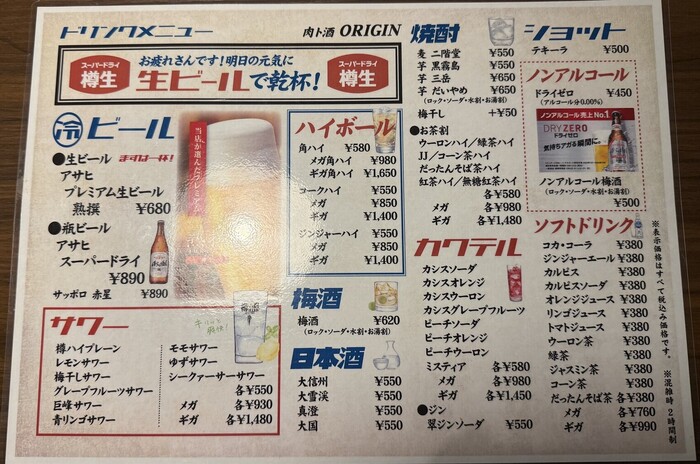 ドリンクメニュー
肉ト酒 ORIGIN
スーパードライ
樽生
お疲れさんです!明日の元気に
生ビールで乾杯!
スーパードライ
樽生
冷 ビール
●生ビール まずは一杯!
アサヒ
プレミアム生ビール
熟撰 ¥680
●瓶ビール
アサヒ
スーパードライ
¥890
サッポロ 赤星 ¥890
当店が選んだプレミアム
サワー
樽ハイプレーン
レモンサワー
梅干しサワー
グレープフルーツサワー
巨峰サワー
青リンゴサワー
モモサワー
ゆずサワー
シークァーサーサワー
各¥550
メガ 各¥930
ギガ 各¥1,480
ハイボール
角ハイ ¥580
メガ角ハイ ¥980
ギガ角ハイ ¥1,650
コークハイ ¥550
メガ ¥850
ギガ ¥1,400
ジンジャーハイ ¥550
メガ ¥850
ギガ ¥1,400
梅酒
梅酒 ¥620
(ロック・ソーダ・水割・お湯割)
日本酒
大信州 ¥550
大雪渓 ¥550
真澄 ¥550
大国 ¥550
焼酎
麦 二階堂 ¥550
芋 黒霧島 ¥550
芋 三岳 ¥650
芋 だいやめ ¥650
(ロック・ソーダ・水割・お湯割)
梅干し +¥50
●お茶割
ウーロンハイ/緑茶ハイ
JJ/コーン茶ハイ
だったんそば茶ハイ
紅茶ハイ/無糖紅茶ハイ
各¥580
メガ 各¥980
ギガ 各¥1,480
カクテル
カシスソーダ
カシスオレンジ
カシスウーロン
カシスグレープフルーツ
ピーチソーダ
ピーチオレンジ
ピーチウーロン
ミスティア 各¥580
メガ 各¥980
ギガ 各¥1,480
●ジン
翠ジンソーダ ¥550
ショット
テキーラ ¥500
ノンアルコール
ドライゼロ ¥450
(アルコール分0.00%)
ノンアルコール売上No.1
DRY ZERO
ドライゼロ
気持ちアガる瞬間に。
ノンアルコール梅酒
(ロック・ソーダ・水割・お湯割)
¥500
ソフトドリンク
コカ・コーラ ¥380
ジンジャーエール ¥380
カルピス ¥380
カルピスソーダ ¥380
オレンジジュース ¥380
リンゴジュース ¥380
トマトジュース ¥380
ウーロン茶 ¥380
緑茶 ¥380
ジャスミン茶 ¥380
コーン茶 ¥380
だったんそば茶 各¥380
メガ 各¥760
ギガ 各¥990
※表示価格はすべて税込み価格です。
※混雑時2時間制